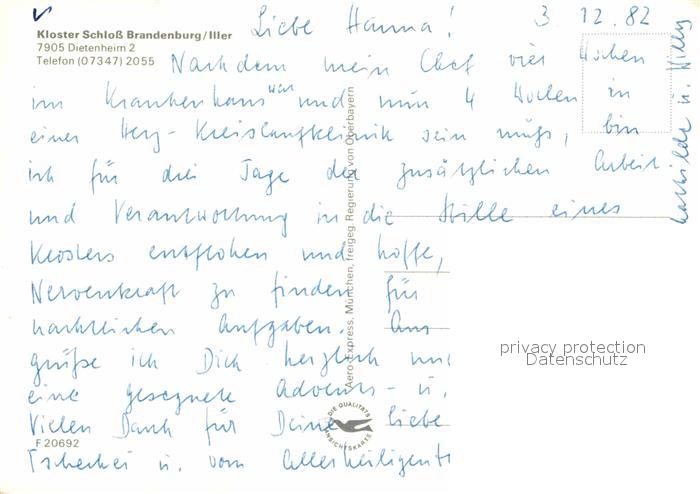 Kloster Schloß Brandenburg/Iller
7905 Dietenheim 2
Telefon (07347) 2055
3. 12. 82
Liebe Hanna!
Nachdem mein Chef vier Wochen
im Krankenhaus war und nun 4 Wochen in
einer Herz-Kreislaufklinik sein muß, bin
ich für drei Tage der zusätzlichen Arbeit
und Verantwortung in die Stille eines
Klosters entflohen und hoffe,
Nervenkraft zu finden für
Aufgaben.
grüße ich Dich herzlich
eine gesegnete Advents- u.
Vielen Dank für Deine liebe
u. vom Allerheiligent
u. Willy
Aero-Express, München, freigeg. Regierung von Oberbayern
DIE QUALITÄTS
ANSICHTSKARTE
F 20692
privacy protection
Datenschutz